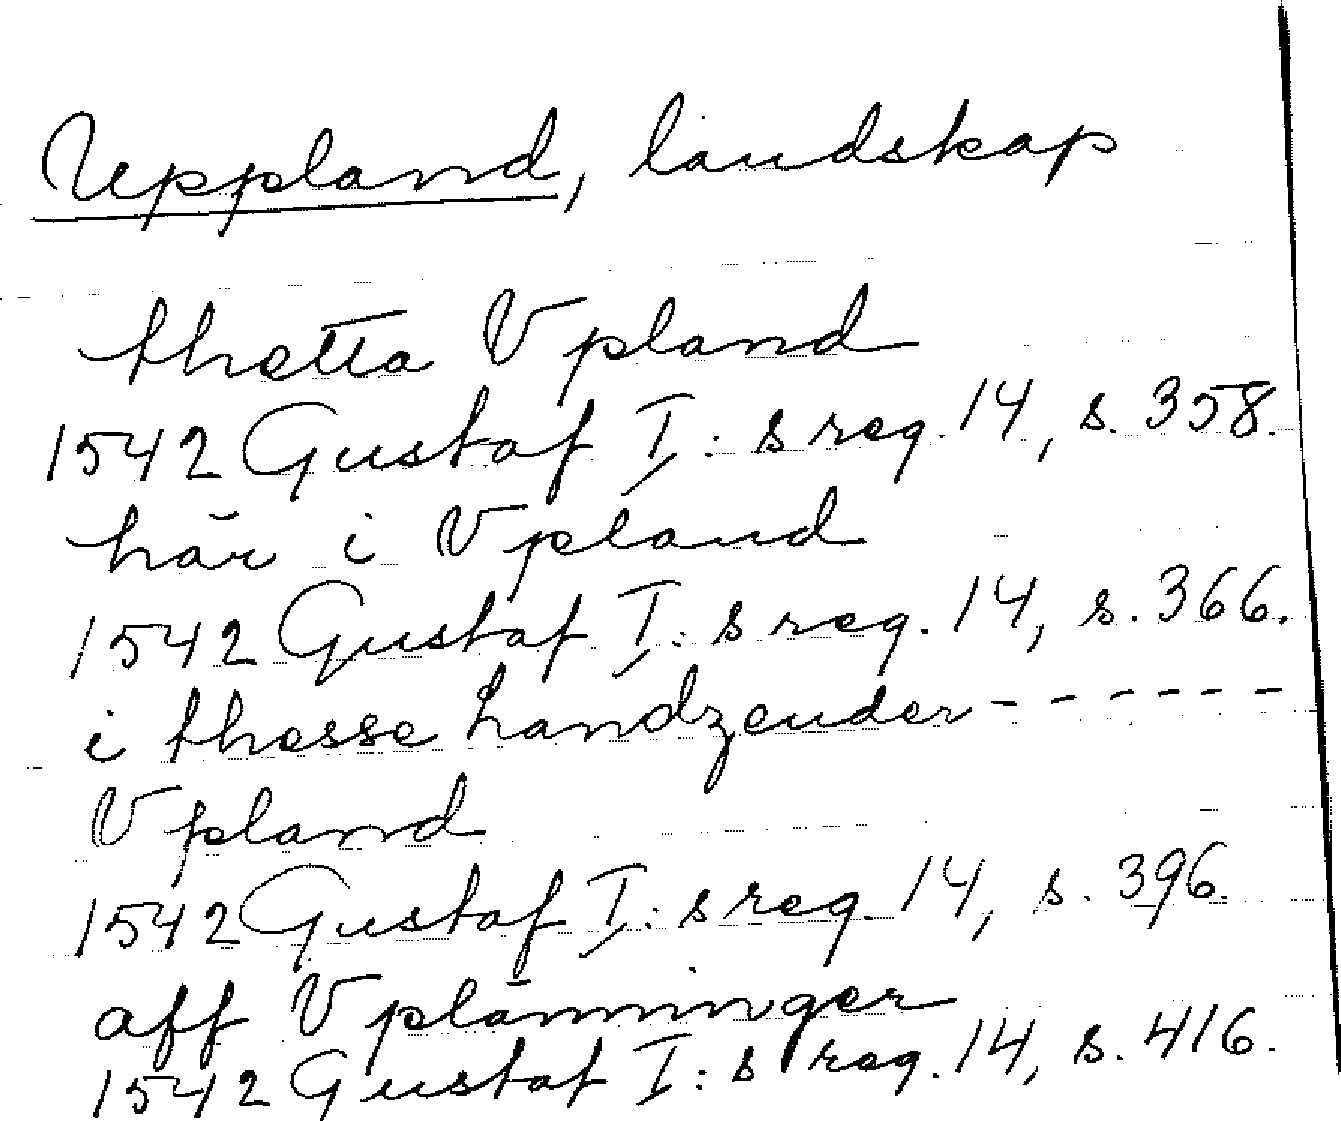 Uppland, landskap
thetta Vpland
1542 Gustaf I:s reg. 14, s. 358.
här i Vpland
1542 Gustaf I:s reg. 14, s. 366.
i thesse landzender - - - - - - -
Vpland
1542 Gustaf I:s reg. 14, s. 396.
aff Vplänninger
1542 Gustaf I:s reg. 14, s. 416.